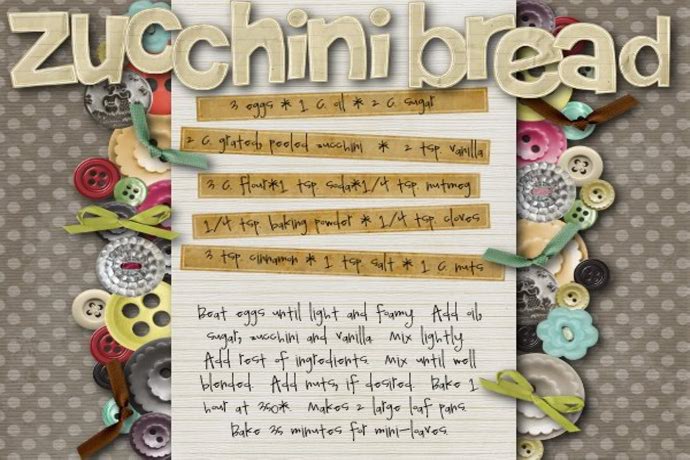 zucchini bread
3 eggs * 1 C. oil * 2 C. sugar
2 C. grated, peeled zucchini * 2 tsp. vanilla
3 C. flour*1 tsp. soda*1/4 tsp. nutmeg
1/4 tsp. baking powder * 1/4 tsp. cloves
3 tsp. cinnamon * 1 tsp. salt * 1 C. nuts
Beat eggs until light and foamy. Add oil,
sugar, zucchini and vanilla. Mix lightly.
Add rest of ingredients. Mix until well
blended. Add nuts, if desired. Bake 1
hour at 350*. Makes 2 large loaf pans.
Bake 35 minutes for mini-loaves.